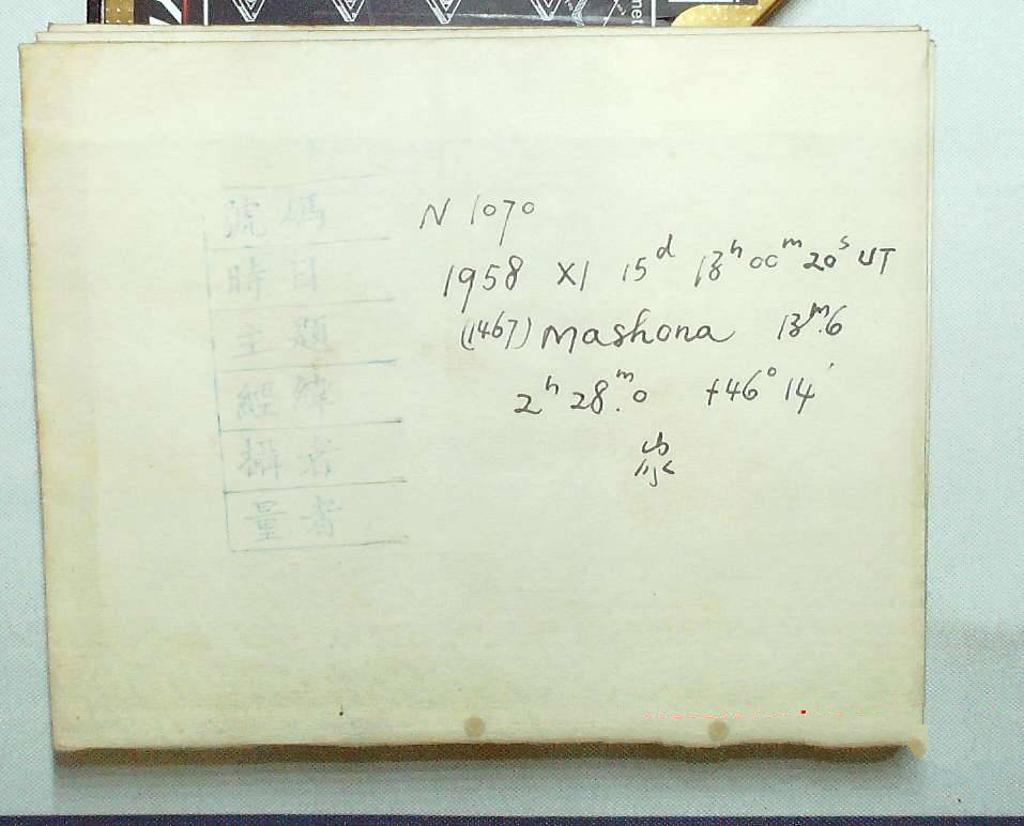 號碼
時日
主題
經緯
攝者
量者
N 1070
1958 XI 15ᵈ 13ʰ 00ᵐ 20ˢ UT
(1467) Mashona 13ᵐ.6
2ʰ 28ᵐ.0 +46° 14′